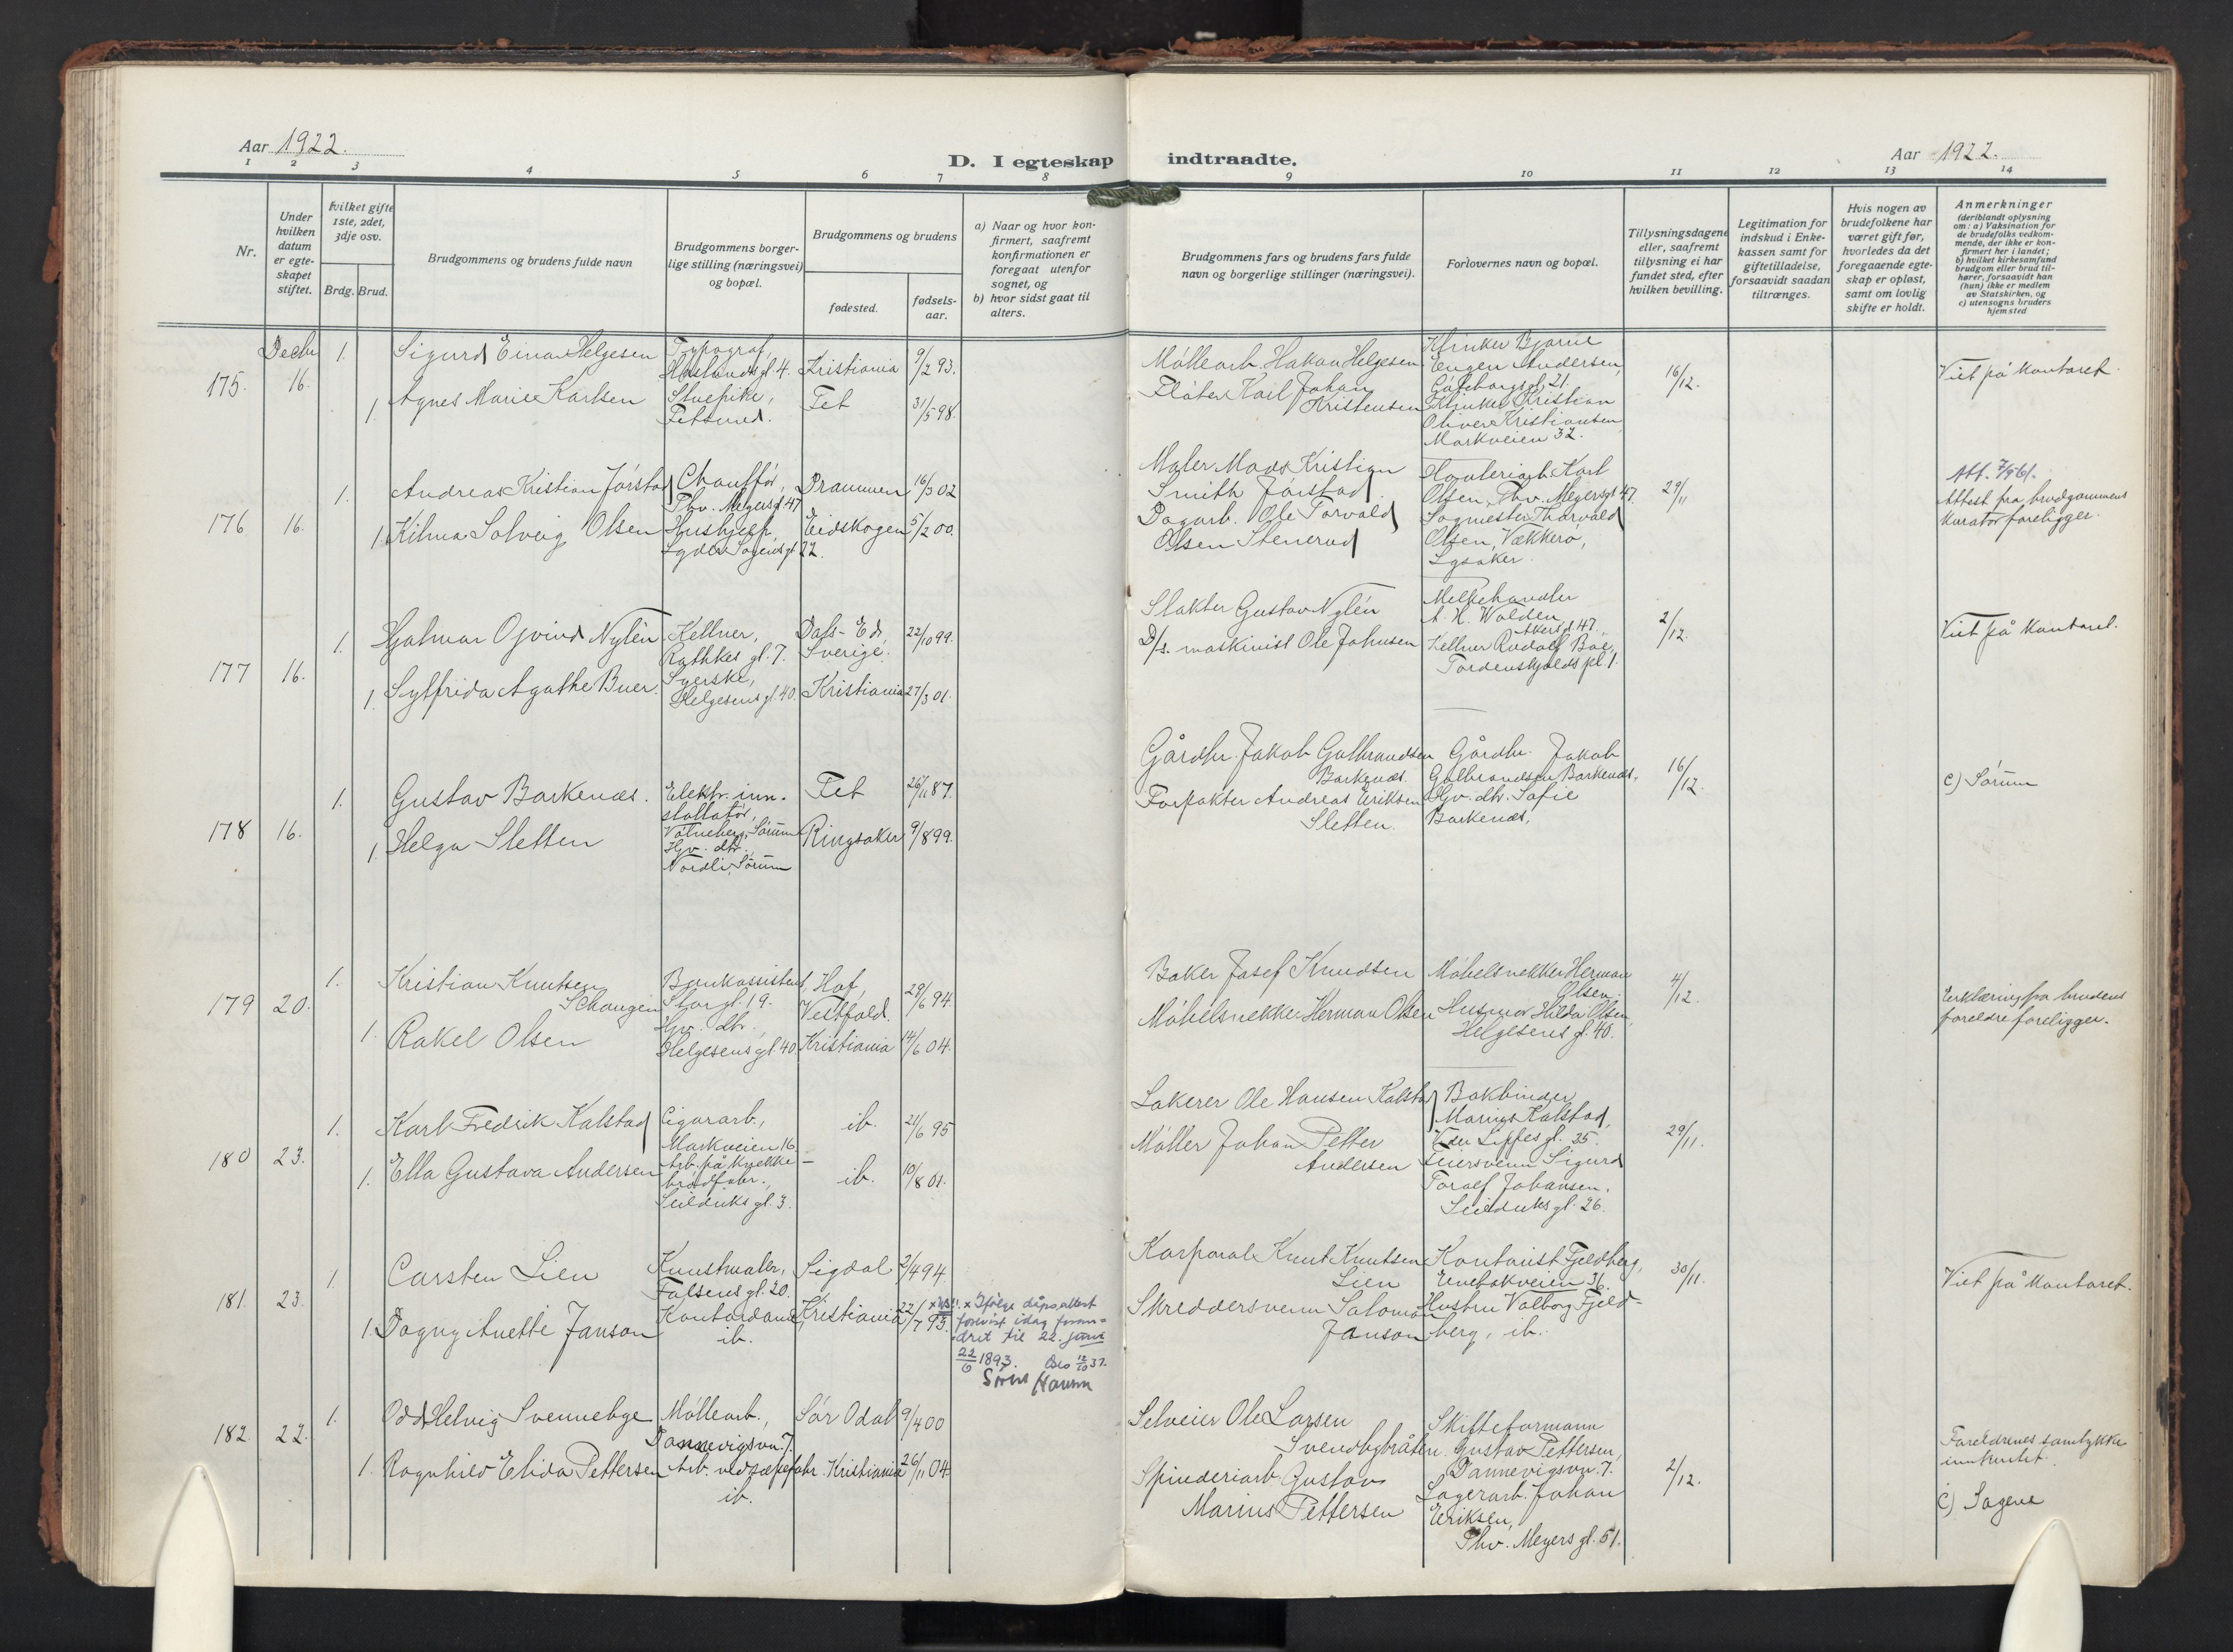 Aar 1922.
D. I egteskap indtraadte.
Aar 1922.
1 2 3 4 5 6 7 8 9 10 11 12 13 14
Nr.
Under hvilken datum er egteskapet stiftet.
Hvilket gifte 1ste, 2det, 3dje osv.
Brdg. Brud.
Brudgommens og brudens fulde navn
Brudgommens borgerlige stilling (næringsvei) og bopæl.
Brudgommens og brudens
fødested.
fødselsaar.
a) Naar og hvor konfirmert, saafremt konfirmationen er foregaat utenfor sognet, og
b) hvor sidst gaat til alters.
Brudgommens fars og brudens fars fulde navn og borgerlige stillinger (næringsvei).
Forlovernes navn og bopæl.
Tillysningsdagene eller, saafremt tillysning ei har fundet sted, efter hvilken bevilling.
Legitimation for indskud i Enkekassen samt for giftetilladelse, forsaavidt saadan tiltrænges.
Hvis nogen av brudefolkene har været gift før, hvorledes da det foregaaende egteskap er opløst, samt om lovlig skifte er holdt.
Anmerkninger
(deriblandt oplysning om: a) Vaksination for de brudefolks vedkommende, der ikke er konfirmert her i landet; b) hvilket kirkesamfund brudgom eller brud tilhører, forsaavidt han (hun) ikke er medlem av Statskirken, og c) utensogns bruders hjemsted
175.
Decbr
16.
1.
Sigurd Einar Helgesen
Typograf,
gt. 4.
Kristiania
9/2 93.
1.
Agnes Marie Karlsen
Stuepike,
Fetsund.
Fet
31/5 98.
Møllearb. Hakon Helgesen
Fløter Karl Johan
Kristensen
Klinker Bjarne
Eugen Andersen,
Gøteborggt. 21.
Klinker Kristian
Oliver Kristiansen
Markveien 32.
16/12.
Viet på kontoret.
176
16.
1.
Andreas Kristian Jørstad
Chauffør,
Thv. Meyersgt. 47
Drammen
16/3 02
1.
Kilma Solveig Olsen
Hushjelp,
Lyder Sagens gt. 22.
Eidskogen
5/2 00.
Maler Mads Kristian
Smith Jørstad.
Dagarb. Ole Torvald
Olsen Stenerud
Karl
Olsen, Thv. Meyersgt 47.
Sagmester Thorvald
Olsen, Vækkerø,
Lysaker.
29/11
Att. 7/9 61.
Attest fra brudgommens
kurator foreligger.
177
16.
1.
Hjalmar Ojvind Nylén
Kellner,
Rathkes gt. 7.
Dals-Ed,
Sverige.
22/10 99.
1.
Sylfrida Agathe Buer.
Syerske,
Helgesens gt. 40.
Kristiania
27/3 01.
Slakter Gustav Nylén
D/s. maskinist Ole Johnsen
Melkehandler
A. H. Wolden,
Akersg. 47.
Kellner Rudolf Boe,
Tordenskjolds pl. 1.
2/12.
Viet på kontoret.
178
16.
1.
Gustav Barkenæs.
Elektr. inn-
stallatør,
Sørum
Fet
26/11 87.
1.
Helga Sletten
Hjv. dtr.,
Nordli, Sørum
Ringsaker
9/8 99.
Gårdbr. Jakob Gulbrandsen
Barkenæs.
Forpakter Andreas Eriksen
Sletten.
Gårdbr. Jakob
Gulbrandsen Barkenæs,
Hjv. dtr. Sofie
Barkenæs,
16/12.
c) Sørum
179
20.
1.
Kristian Knutsen
Schaugen
Bankassistent,
Storgt. 19.
Hof,
Vestfold.
29/6 94.
1.
Rakel Olsen
Hjv. dtr.,
Helgesens gt. 40.
Kristiania
14/6 04.
Baker Josef Knudsen
Møbelsnekker Herman Olsen
Møbelsnekker Herman
Olsen.
Husmor Hilda Olsen,
Helgesens gt. 40.
4/12.
Erklæring fra brudens
foreldre foreligger.
180
23.
1.
Karl Fredrik Kalstad
Cigararb.,
Markveien 16
ib.
21/6 95
1.
Ella Gustava Andersen
Arb. på knekke-
brødfabr.,
Seilduks gt. 3.
ib.
10/8 01.
Lakerer Ole Hansen Kalstad
Møller Johan Petter
Andersen
Bokbinder
Marius Kalstad,
Van Lippes gt. 35.
Feiersvenn Sigurd
Toralf Johansen.
Seilduks gt. 26.
29/11.
181.
23.
1.
Carsten Lien
Kunstmaler,
Falsens gt. 20.
Sigdal
2/4 94.
1.
Dagny Anette Janson
Kontordame
ib.
Kristiania
22/7 93.
x NB!! x Ifølge dåpsattest
forevist idag foran-
dret til 22. juni
22/6 1893. Oslo 12/10 37.
Hansen
Korporal Knut Knutsen
Lien
Skreddersvenn Salomon
Janson
Kontorist Fjeldberg,
Enebakveien 36.
Hustru Valborg Fjeld-
berg, ib.
30/11.
Viet på kontoret.
182
22.
1.
Odd Helvig Svennebye
Møllearb.,
Dannevigsvn. 7.
Sør Odal
9/4 00
1.
Ragnhild Elida Pettersen
Arb. ved sæpefabr.
ib.
Kristiania
26/11 04.
Selveier Ole Larsen
Svendbybråten.
Spinderiarb. Gustav
Marius Pettersen
Skifteformann
Gustav Pettersen,
Dannevigsvn. 7.
Lagerarb. Johan
Eriksen,
Thv. Meyers gt. 51.
2/12.
Foreldrenes samtykke
c) Sagene